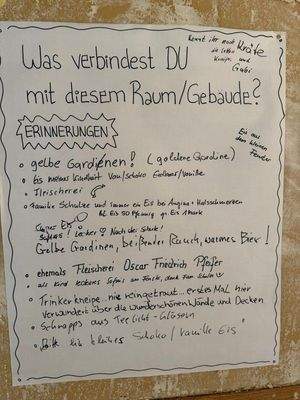 Kennt ihr noch Kräte
die letzte
Kneipe und
Gabi
Was verbindest DU
mit diesem Raum/Gebäude?
Eis aus
dem kleinen
Fenster
ERINNERUNGEN
gelbe Gardienen! (goldene Gardine)
Eis meiner Kindheit Von/Schoko Erdbeer/Vanille
Fleischerei
Familie Schultze und immer ein Eis bei Angina + Halsschmerzen
ab Eis 50 Pfennig gr. Eis 1 Mark
Super Eis
Lecker Nach der Schule!
Gelbe Gardinen, beißender Rauch, warmes Bier!
ehemals Fleischerei Oscar Friedrich Pfeifer
als Kind leckeres Softeis am Fenster, dank
Trinkerkneipe.. nie reingetraut... erstes Mal hier
verwundert über die wunderschönen Wände und Decken
Schnapps aus Teelicht-Gläsern
kleines Schoko/Vanille Eis